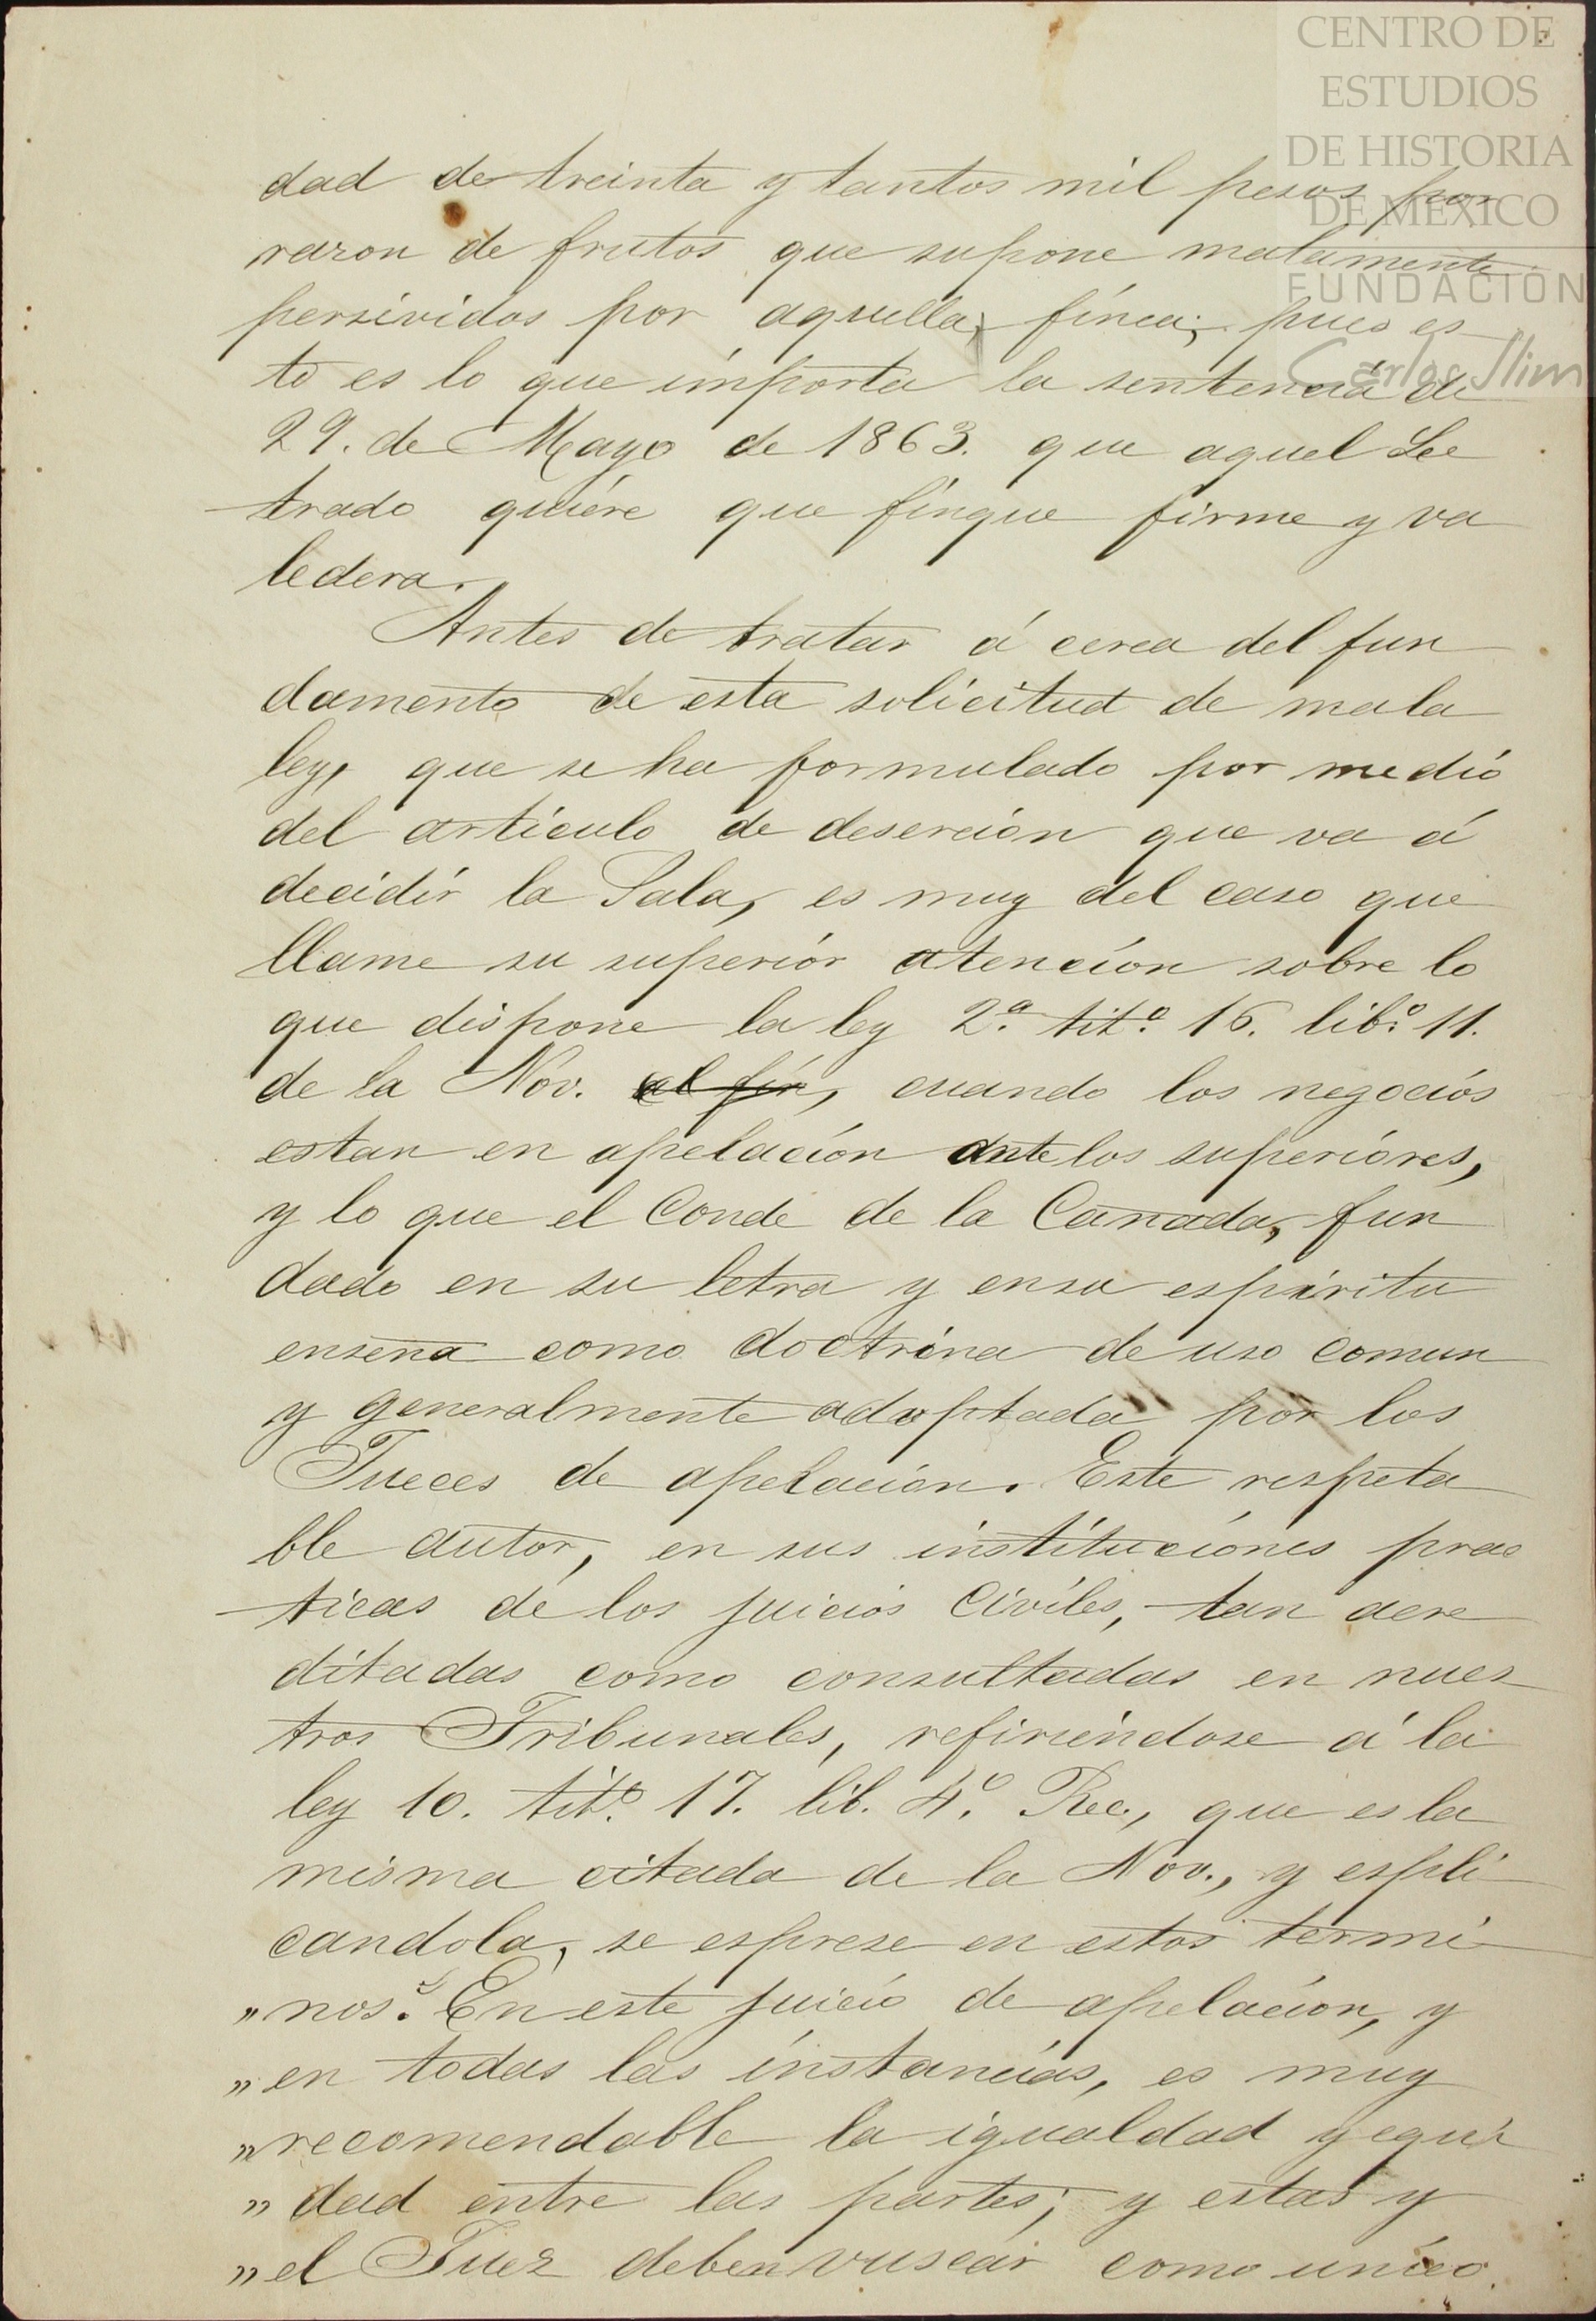 CENTRO DE
ESTUDIOS
DE HISTORIA
DE MÉXICO
FUNDACIÓN
Carlos Slim
dad de treinta y tantos mil pesos por
razon de frutos que supone malamente
persividos por aquella, finca; pues es
to es lo que importa la sentencia de
29. de Mayo de 1863. que aquel Le
trado quiére que finque firme y va
ledera.
Antes de tratar á cerca del fun
damento de esta solicitud de mala
ley, que se ha formulado por medio
del articulo de desercion que va á
decidir la Sala, es muy del caso que
llame su superiór atencion sobre lo
que dispone la ley 2.ª tit.º 15. lib.º 11.
de la Nov. al fin, cuando los negocios
estan en apelacion ante los superióres,
y lo que el Conde de la Canada, fun
dado en su letra y en su espiritu
ensena como doctrina de uso comun
y generalmente adoptada por los
Jueces de apelacion. Este respeta
ble autor, en sus instituciónes prac
ticas de los juicios Civiles, tan acre
ditadas como consultadas en nues
tros Tribunales, refiriendose á la
ley 10. tit.º 17. lib. 4.º Rec., que es la
misma citada de la Nov., y espli
candola, se esprese en estos termi
„nos: En este juicio de apelacion, y
„en todas las instancias, es muy
„recomendable la igualdad y equi
„dad entre las partes; y estas y
„el Juez deben vuscar como unico